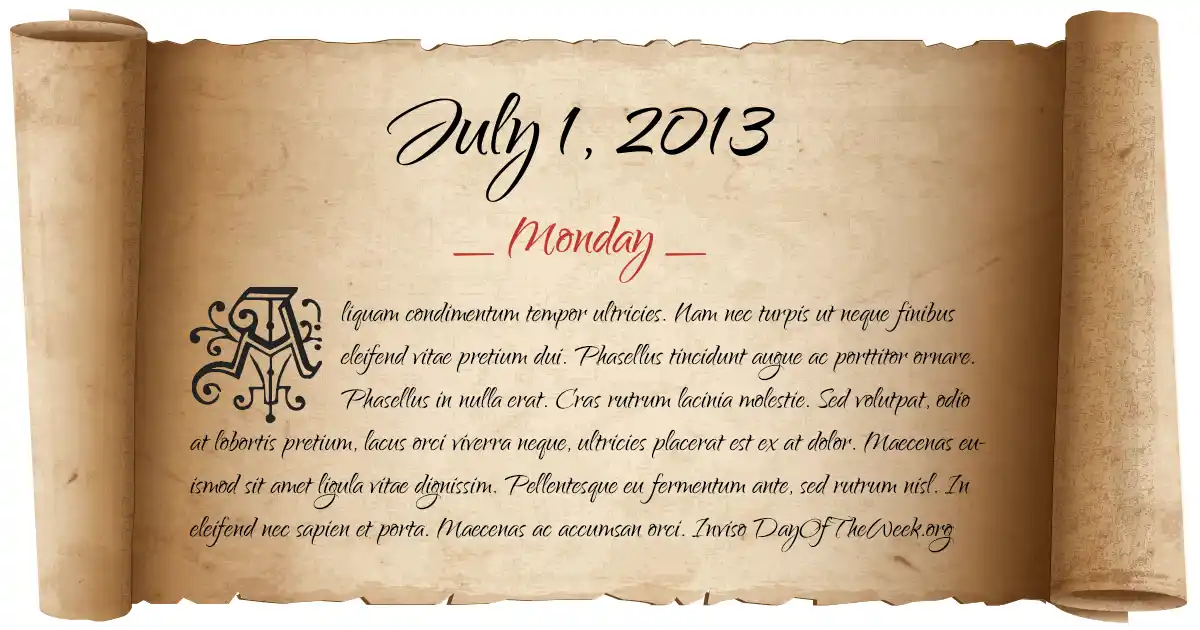 July 1, 2013
— Monday —
Aliquam condimentum tempor ultricies. Nam nec turpis ut neque finibus
eleifend vitae pretium dui. Phasellus tincidunt augue ac porttitor ornare.
Phasellus in nulla erat. Cras rutrum lacinia molestie. Sed volutpat, odio
at lobortis pretium, lacus orci viverra neque, ultricies placerat est ex at dolor. Maecenas eu-
ismod sit amet ligula vitae dignissim. Pellentesque eu fermentum ante, sed rutrum nisl. In
eleifend nec sapien et porta. Maecenas ac accumsan orci. Inviso DayOfTheWeek.org